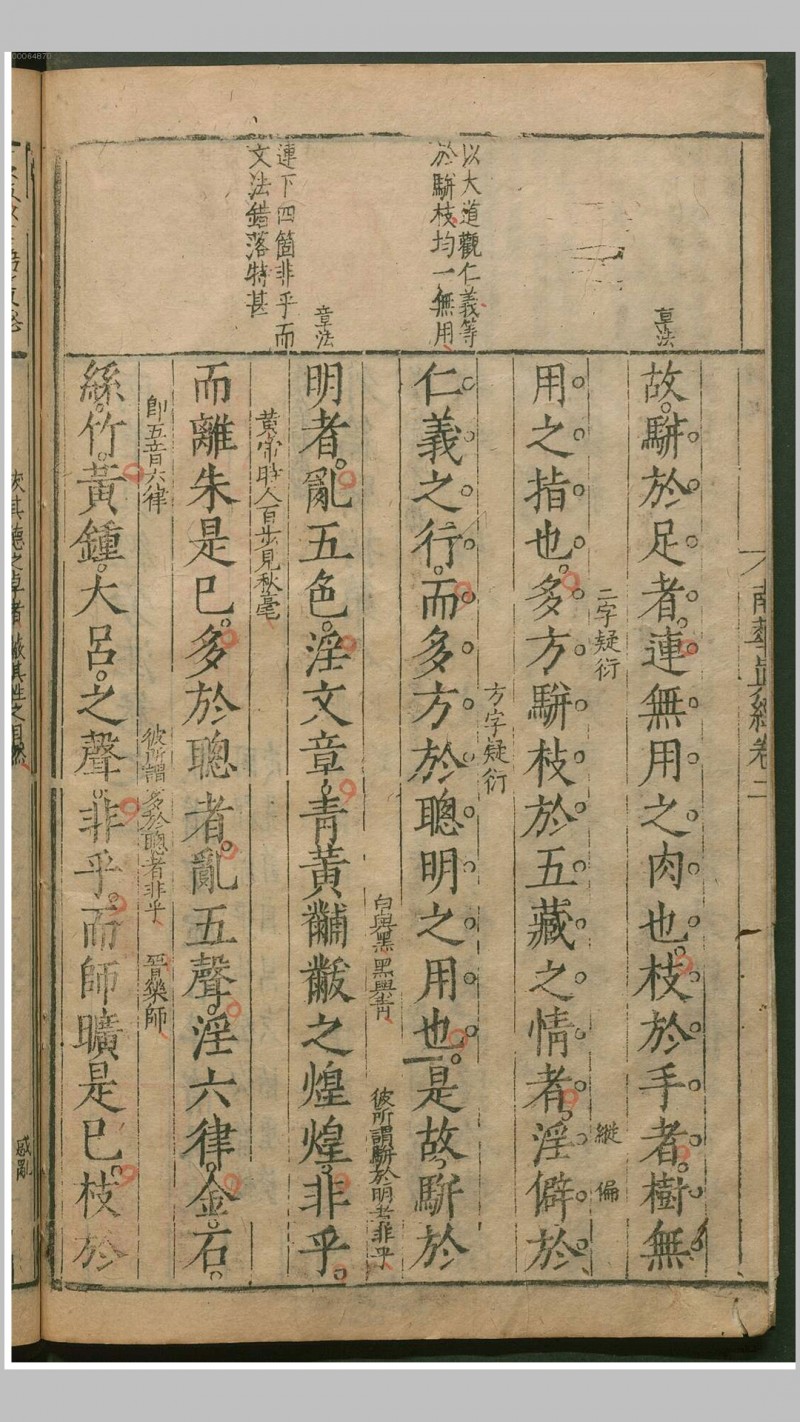 00064870
南華眞經卷二
章法
故駢於足者連無用之肉也枝於手者樹無
二字疑衍
縱
偏
用之指也多方駢枝於五藏之情者淫僻於
方字疑衍
以大道觀仁義等
於駢枝均一無用
仁義之行而多方於聰明之用也是故駢於
白與黑黑與青
彼所謂駢於明者非乎
章法
明者亂五色淫文章青黃黼黻之煌煌非乎
連下四箇非乎而
文法錯落特甚
黃帝時人百步見秋毫
而離朱是已多於聰者亂五聲淫六律金石
即五音六律
彼所謂多於聰者非乎
晉樂師
絲竹黃鍾大呂之聲非乎而師曠是已枝於